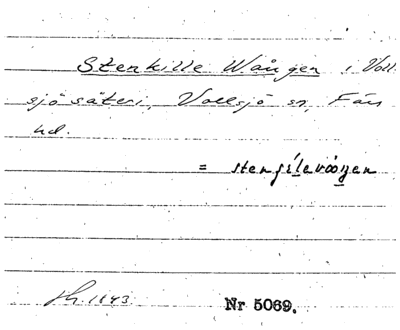 Stenkille Wången i Voll-
sjö säteri, Vollsjö sn, Färs
hd.
= stenʃílevǻŋen
1843
Nr 5069.